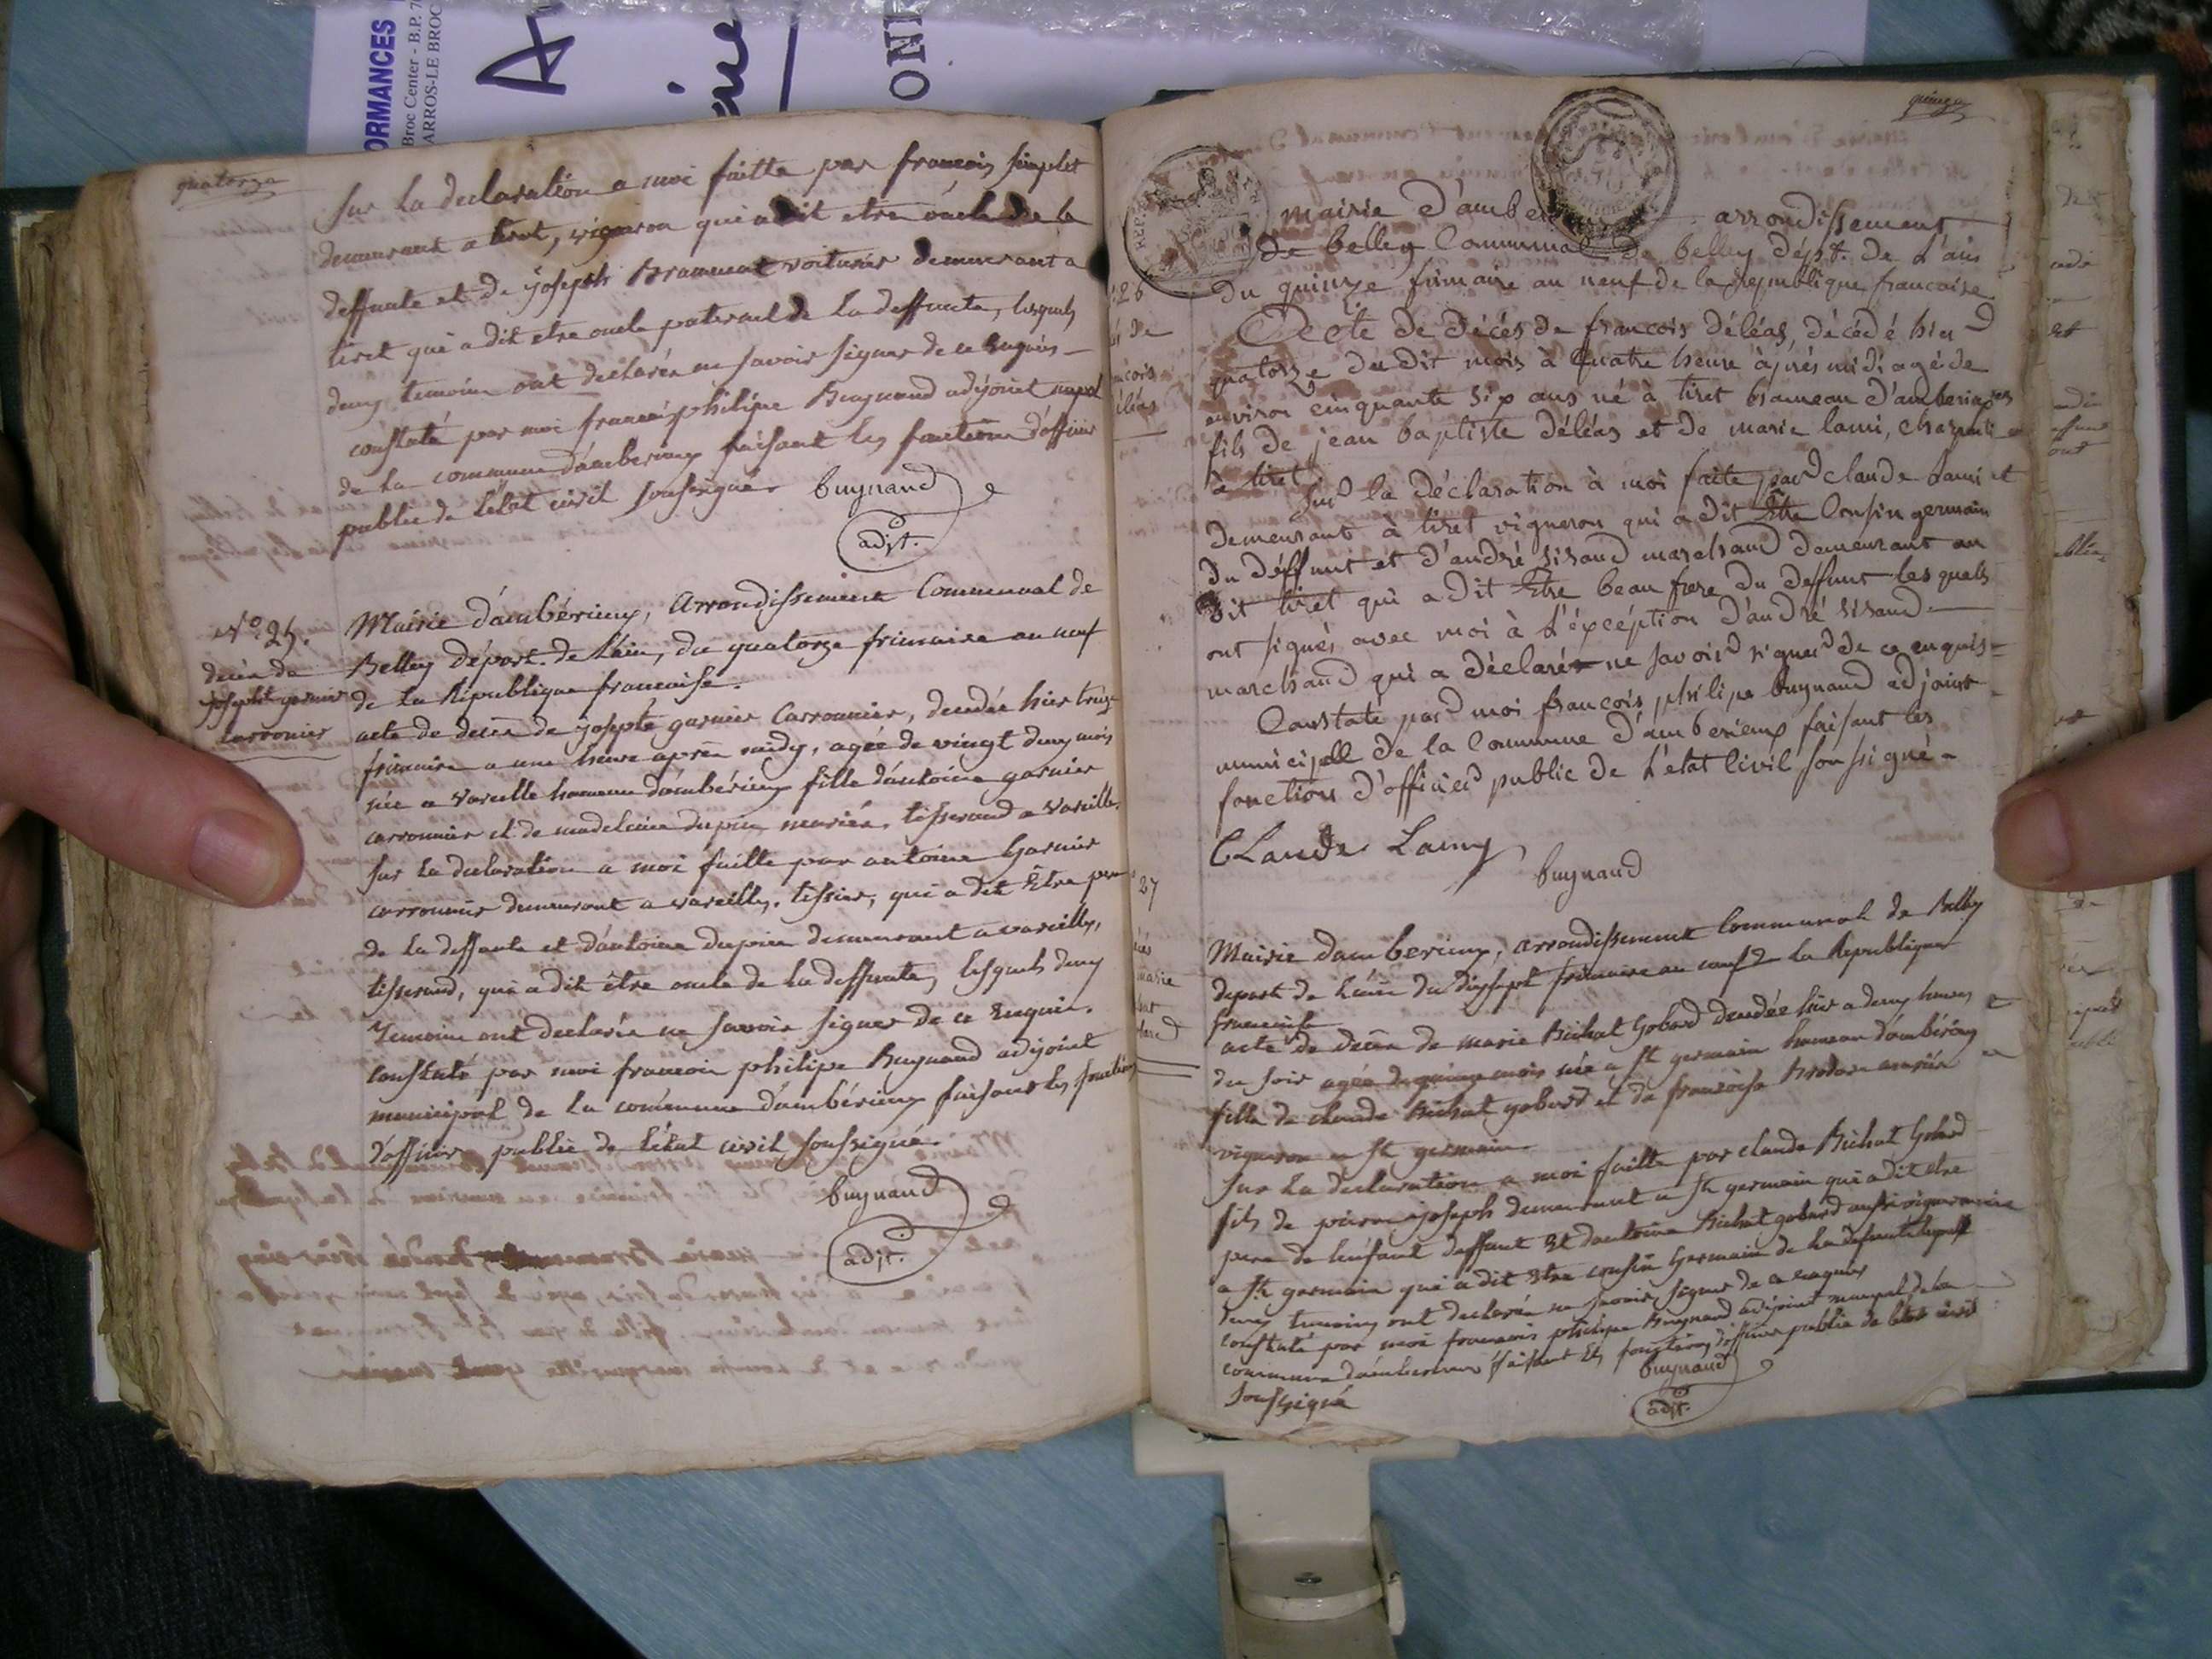 ORMANCES
Broc Center - B.P. 7
ARROS-LE BROC
quatorze
Sur la declaration a moi faitte par francois simplet
demeurant a tiret, vigneron qui a dit etre oncle de la
deffunte et de joseph Bramerel voiturier demeurant a
tiret qui a dit etre oncle paternel de la deffunte, lesquels
deux temoins ont declarés ne savoir signer de ce Enquis
constaté par moi francois philipe Buynand adjoint mupal
de la commune d'amberieux faisant les fonctions d'officier
public de l'état civil soussigné. buynand
adjt.
N.o 25.
décès de
josephte garnier
carronnier
Mairie d'ambérieux, Arrondissement Communal de
Belley départ. de l'ain, du quatorze frimaire an neuf
de la République francaise.
acte de décès de josephte garnier Carronnier, decedée hier treize
frimaire a une heure après midy, agée de vingt deux mois
née a vareille hameau d'ambérieux fille d'antoine garnier
carronnier et de madelaine dupin mariés, tisserand a vareille.
Sur la declaration a moi faitte par antoine Garnier
carronnier demeurant a vareilles, tissier, qui a dit Etre pere
de la deffunte et d'antoine dupin demeurant a vareilles,
tisserand, qui a dit être oncle de la deffunte, lesquels deux
Temoins ont declarés ne savoir signer de ce Enquis.
Constaté par moi francois philipe Buynand adjoint
municipal de la commune d'ambérieux faisant les fonctions
d'officier public de l'état civil soussigné.
buynand
adjt.
quinze
mairie d'amber arrondissement
de belley Communal de belley dépt. de l'ain
du quinze frimaire an neuf de la republique francaise
26
de
Acte de décés de francois déléas, décédé hier
quatorze du dit mois à quatre heure après midi agé de
environ cinquante six ans né à tiret hameau d'amberieux
fils de jean baptiste déléas et de marie lami, charpentier
à tiret
Sur la déclaration à moi faite par claude Lami et
demeurant à tiret vigneron qui a dit Etre Cousin germain
du déffunt et d'andré sirand marchand demeurant au
dit tiret qui a dit Etre beau frere du deffunt lesquels
ont signés avec moi à l'éxcéption d'andré sirand
marchand qui a déclaré ne savoir signer de ce enquis
Constaté par moi francois philipe buynand adjoint
municipal de la Commune d'amberieux faisant les
fonctions d'officier public de l'état Civil soussigné
CLaude Lamy
buynand
27
Mairie d'amberieux, arrondissement Communal de Belley
depart de l'ain du dixsept frimaire an neuf de la Republique
francaise
acte de décès de marie Bichat Gobard decedée hier a deux heures
du soir agée de quinze mois née a St germain hameau d'ambérieux
fille de claude Bichat gobard et de francoise Brodon mariés
vigneron a St germain
Sur la declaration a moi faitte par claude Bichat Gobard
fils de pierre joseph demeurant a St germain qui a dit etre
pere de l'enfant deffunt Et d'antoine Bichat gobard aussi vigneron
a St germain qui a dit Etre cousin Germain de la defunte lesquels
deux temoins ont declarés ne savoir signer de ce enquis
constaté par moi francois philipe Buynand adjoint munipal de la
commune d'amberieux faisant les fonctions d'officier public de l'état civil
soussigné
buynand
adjt.